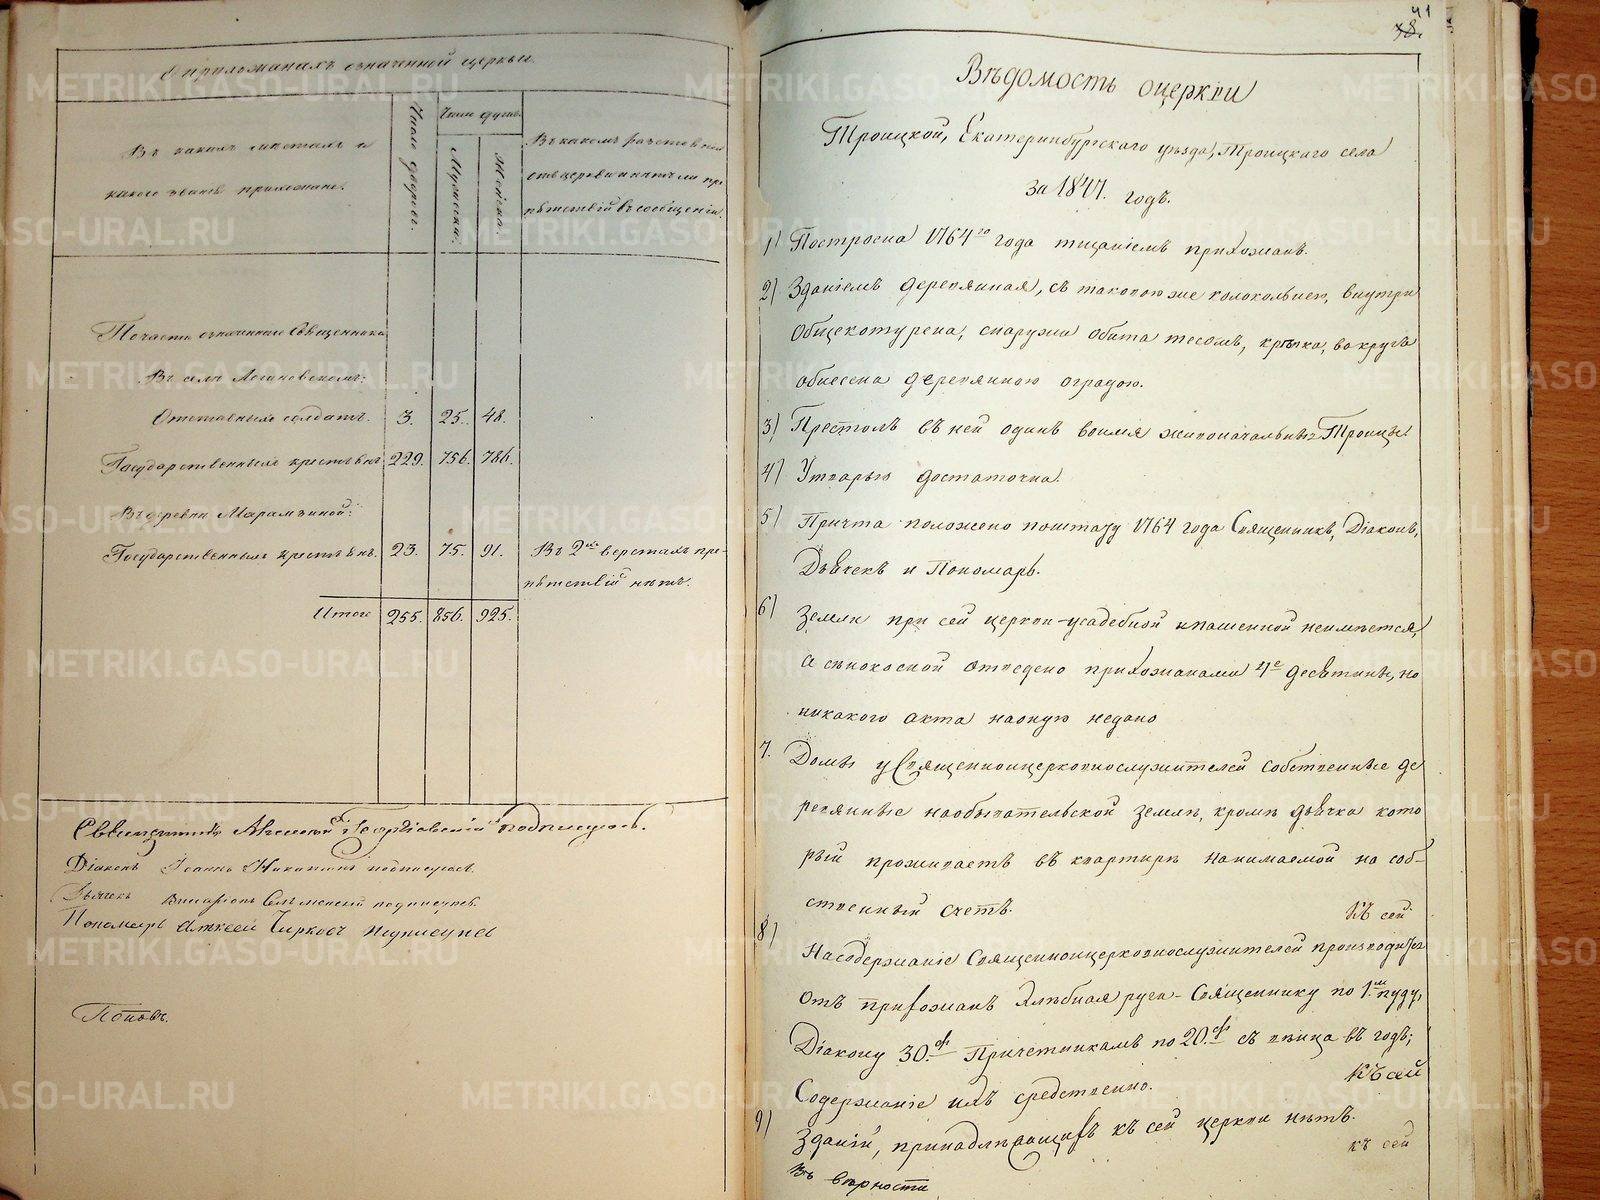 О прихожанахъ означенной церкви.
Въ какихъ мѣстахъ и
какого званія прихожане.
Число дворовъ.
Число душъ.
Мужеска.
Женска.
Въ какомъ разстояніи
отъ церкви и нѣтъ ли пре
пятствій въ сообщеніи.
По части означеннаго Священника
Въ селѣ Логиновскомъ:
Отставныхъ солдатъ. 3. 25. 48.
Государственныхъ крестьянъ 229. 756. 786.
Въ деревни Марамзиной:
Государственныхъ крестьянъ. 23. 75. 91. Въ 2хъ верстахъ пре-
пятствій нѣтъ.
Итого 255. 856. 925.
Священникъ Георгіевскій подписуюсь.
Діаконъ Іоаннъ Никитинъ подписуюсь.
Дьячекъ подписуюсь.
Пономарь Алексей Чирковъ подписуюсь
Поповъ.
41
78.
Вѣдомость о церкви
Троицкой, Екатеринбургскаго уѣзда, Троицкаго села
за 1847. годъ.
1) Построена 1764го года тщаніемъ прихожанъ.
2) Зданіемъ деревянная, съ таковою же колокольнею, внутри
общекотурена, снаружи обита тесомъ, крѣпка, вокругъ
обнесена деревянною оградою.
3) Престолъ въ ней одинъ во имя живоначальныя Троицы.
4) Утварью достаточна.
5) Причта положено по штату 1764 года Священникъ, Діаконъ,
Дьячекъ и Пономарь.
6) Земли при сей церкви усадебной и пашенной неимѣется,
а сѣнокосной отведено прихожанами 4е десятины, но
никакого акта на оную недано
7. Домы у Священноцерковнослужителей собственные де
ревянные на обывательской землѣ, кромѣ дьячка кото
рый проживаетъ въ квартирѣ нанимаемой на соб-
ственный счетъ.
къ сей
8) На содержаніе Священноцерковнослужителей производится
отъ прихожанъ хлѣбная руга - Священнику по 1му пуду,
Діакону 30.ф Причетникамъ по 20.ф съ вѣнца въ годъ;
Содержаніе ихъ средственно.
къ сей
9) Зданій, принадлежащихъ къ сей церкви нѣтъ.
къ сей
Въ вѣрности
METRIKI.GASO-URAL.RU